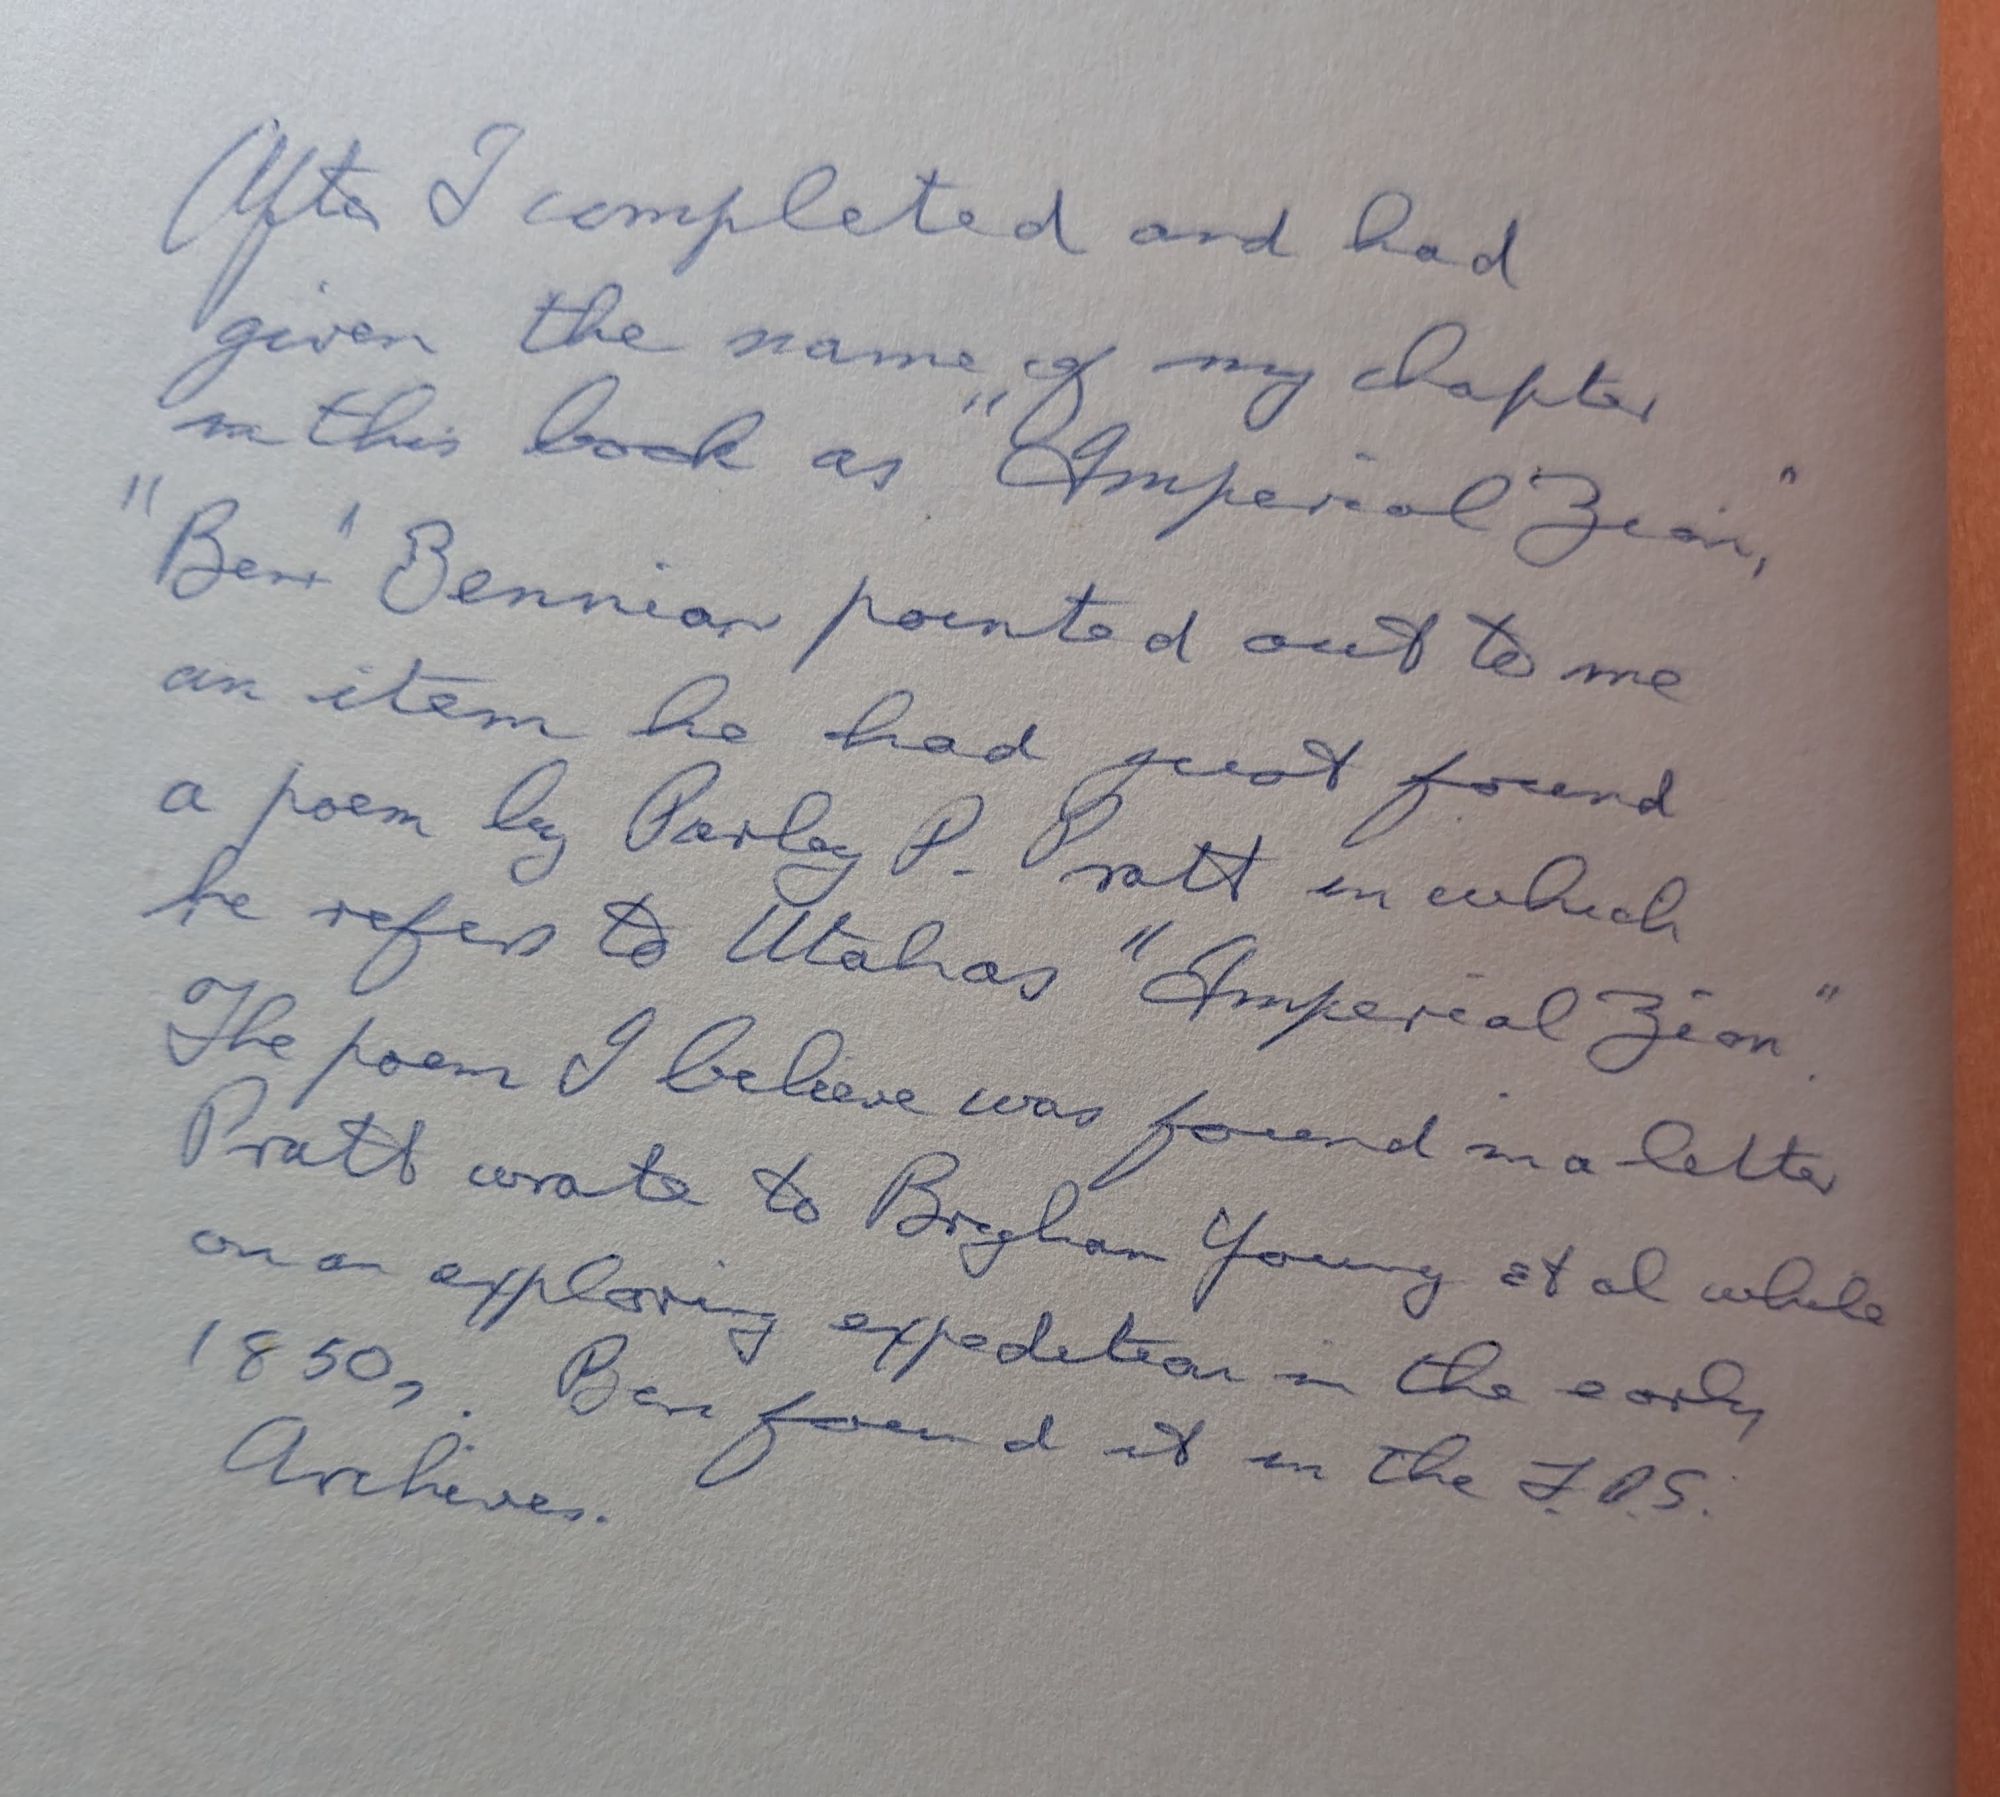 After I completed and had
given the name of my chapter
in this book as "Imperial Zion,"
"Ben" Bennion pointed out to me
an item he had just found
a poem by Parley P. Pratt in which
he refers to Utah as "Imperial Zion".
The poem I believe was found in a letter
Pratt wrote to Brigham Young et al while
on an exploring expedition in the early
1850s. Ben found it in the L.D.S.
Archives.